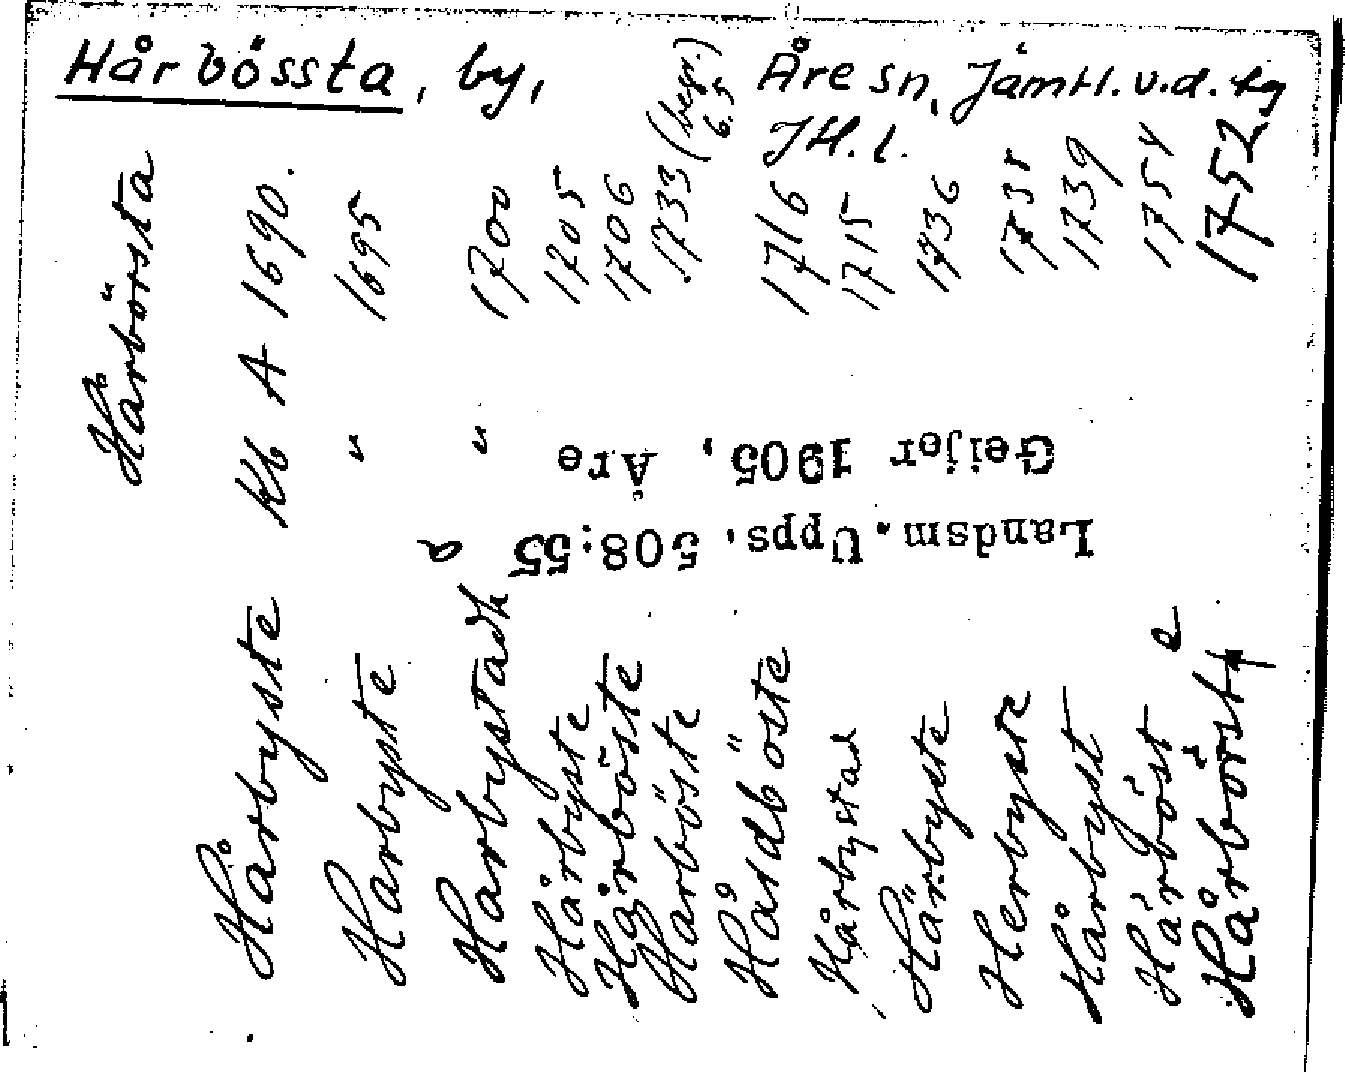 Hårbössta, by, Åre sn, Jämtl. v.d. tg
JH. l.
Hårbörsta
Hårbyste Kb A 1690.
Harbyste " 1695
Harbystadh a " 1700
Hårbyste 1705
Hårböste 1706
Harböste 1733 (begr.) 6.5
Hårdböste 1716
Hårbystad 1715
Härbyste 1736
Herbyste 1738
Hårbyst 1739
Hårböste 1754
Hårbösta 1752
Landsm. Upps. 508:55
Geijer 1905, Åre